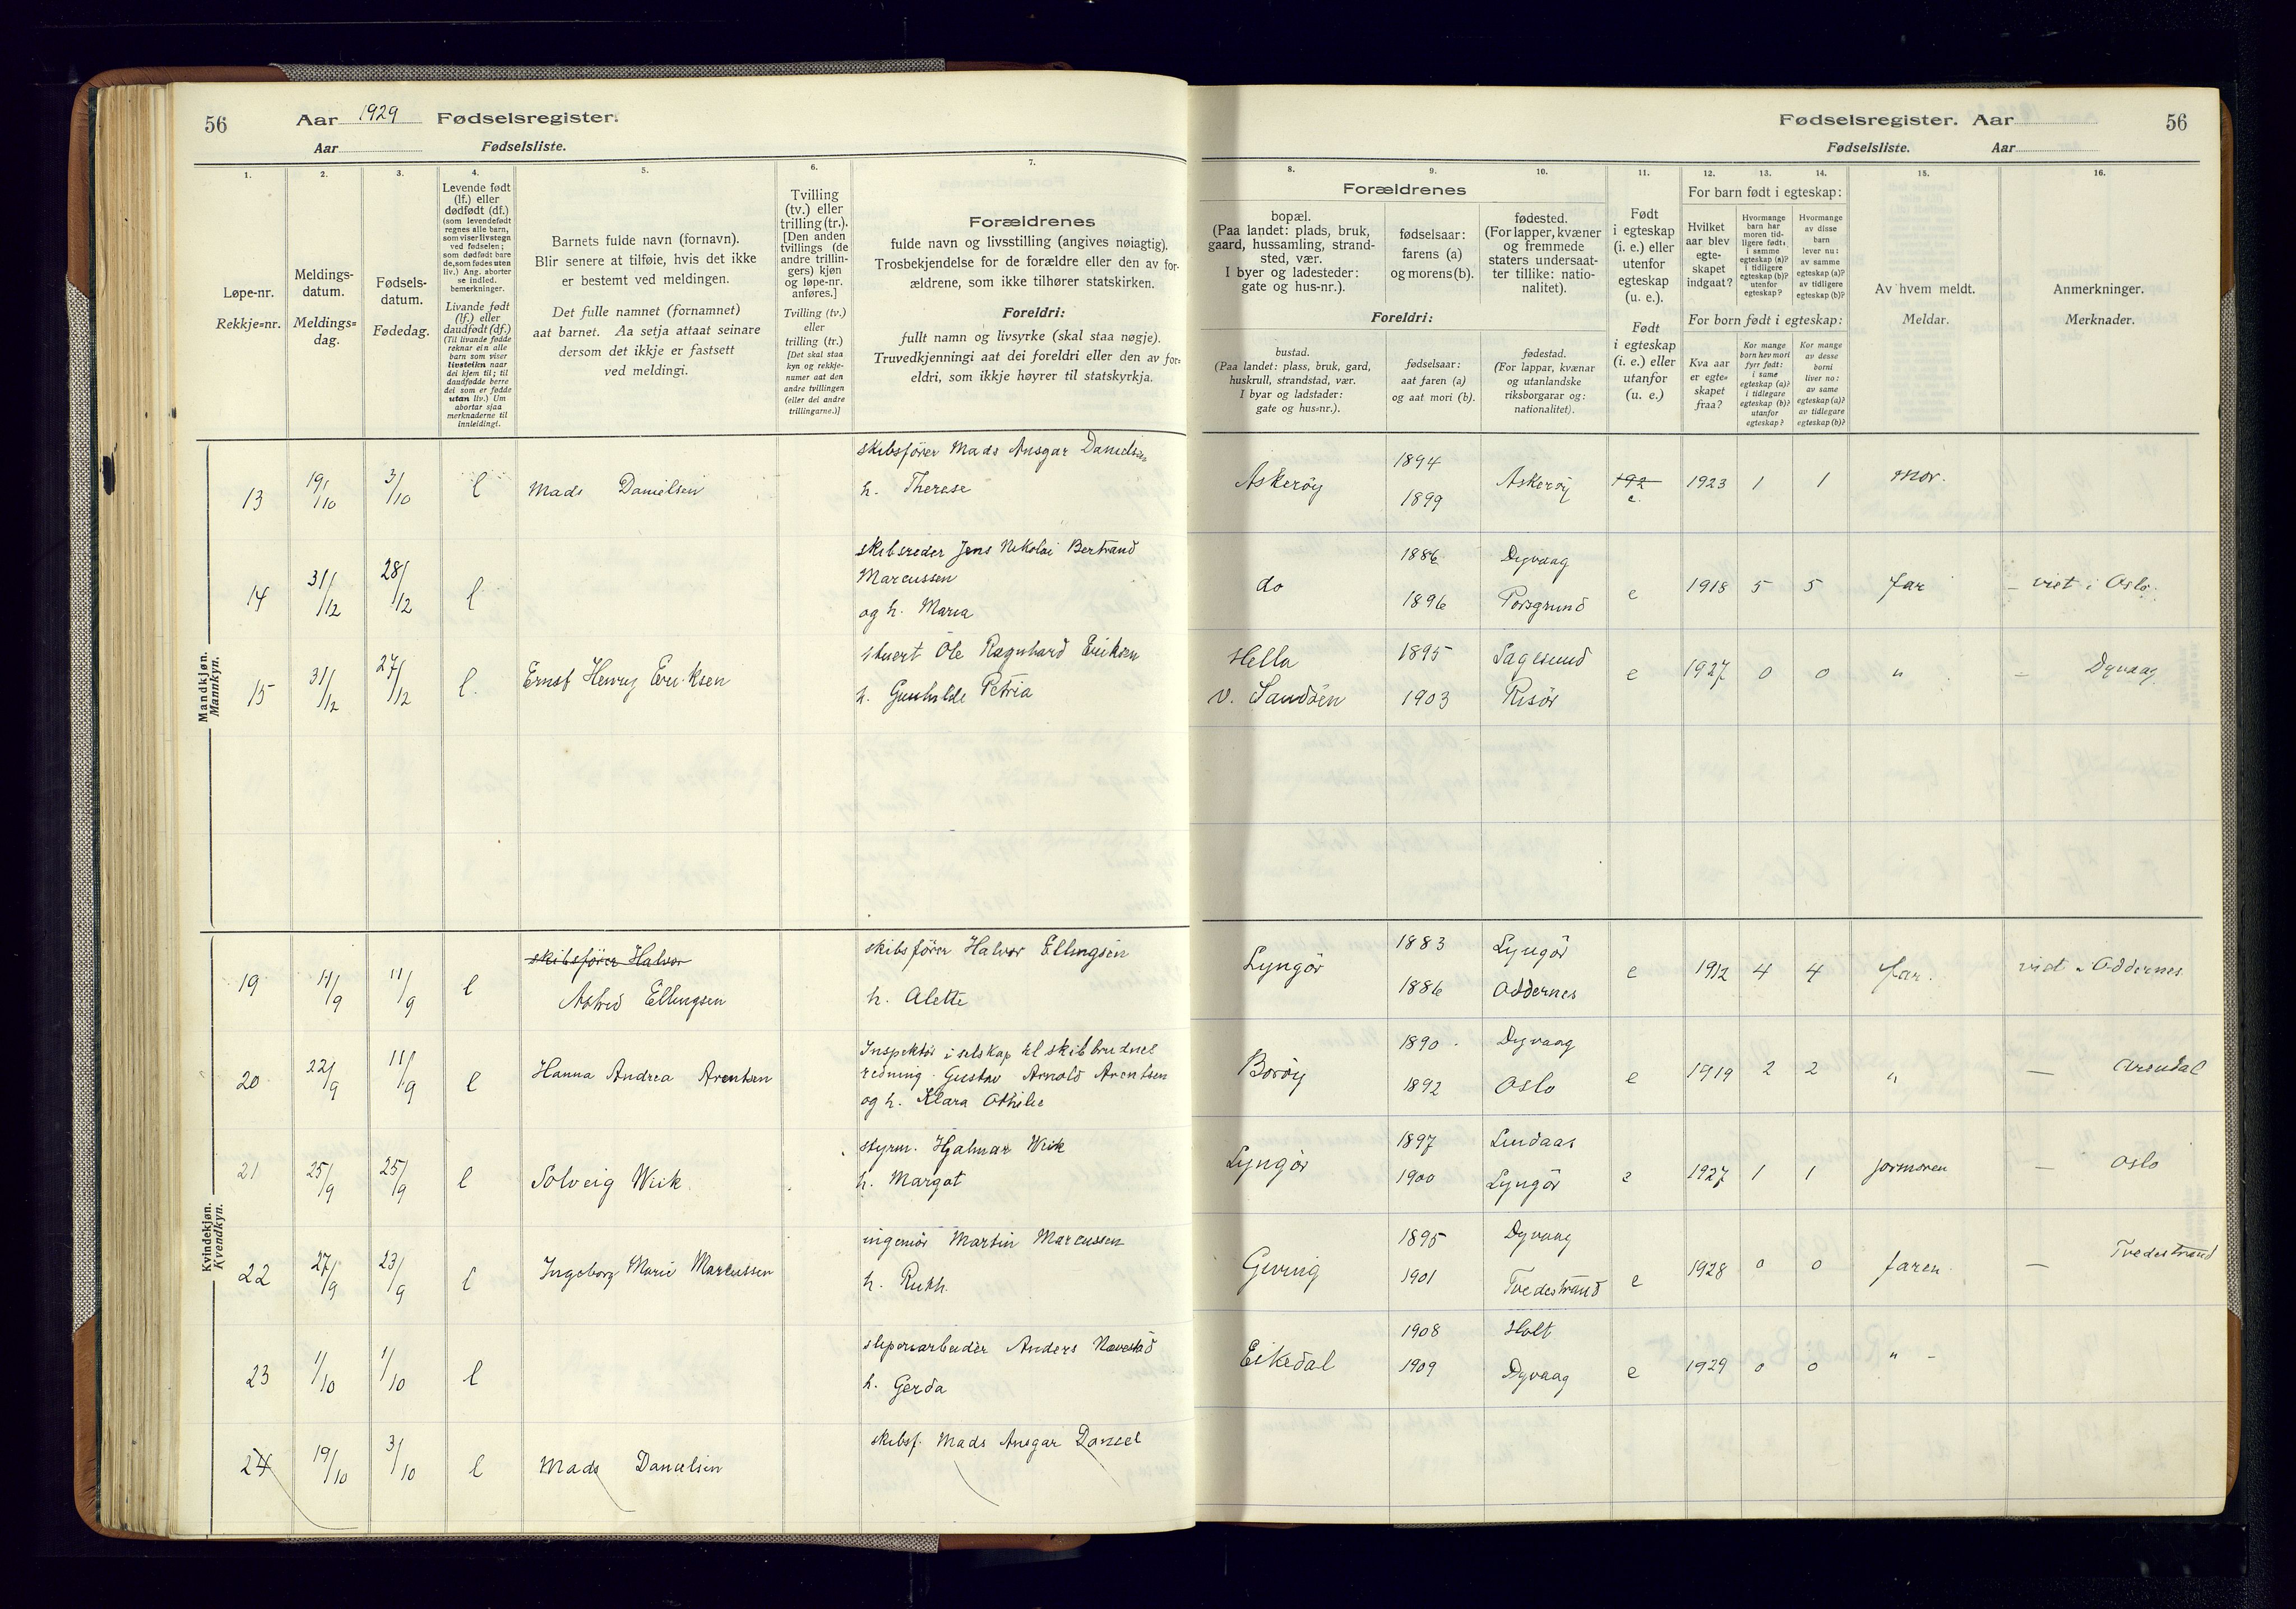 56 Aar 1929 Fødselsregister.
Aar Fødselsliste.
Fødselsregister. Aar 56
Fødselsliste. Aar
1. 2. 3. 4. 5. 6. 7.
Løpe-nr.
Rekkje=nr.
Meldings-
datum.
Meldings=
dag.
Fødsels-
datum.
Fødedag.
Levende født
(lf.) eller
dødfødt (df.)
(som levendefødt
regnes alle barn,
som viser livstegn
ved fødselen;
som dødfødt bare
de, som fødes uten
liv.) Ang. aborter
se indled.
bemerkninger.
Livande født
(lf.) eller
daudfødt (df.)
(Til livande fødde
reknar ein alle
barn som viser
livsteikn naar
dei kjem til; til
daudfødde berre
dei som er fødde
utan liv.) Um
abortar sjaa
merknaderne til
innleidingi.
Barnets fulde navn (fornavn).
Blir senere at tilføie, hvis det ikke
er bestemt ved meldingen.
Det fulle namnet (fornamnet)
aat barnet. Aa setja attaat seinare
dersom det ikkje er fastsett
ved meldingi.
Tvilling
(tv.) eller
trilling (tr.).
[Den anden
tvillings (de
andre trillin-
gers) kjøn
og løpe-nr.
anføres.]
Tvilling (tv.)
eller
trilling (tr.)
[Det skal staa
kyn og rekkje-
numer aat den
andre tvillingen
(eller dei andre
trillingarne.)]
Forældrenes
fulde navn og livsstilling (angives nøiagtig).
Trosbekjendelse for de forældre eller den av for-
ældrene, som ikke tilhører statskirken.
Foreldri:
fullt namn og livsyrke (skal staa nøgje).
Truvedkjenningi aat dei foreldri eller den av for=
eldri, som ikkje høyrer til statskyrkja.
8. 9. 10. 11. 12. 13. 14. 15. 16.
Forældrenes
bopæl.
(Paa landet: plads, bruk,
gaard, hussamling, strand-
sted, vær.
I byer og ladesteder:
gate og hus-nr.).
fødselsaar:
farens (a)
og morens (b).
fødested.
(For lapper, kvæner
og fremmede
staters undersaat-
ter tillike: natio-
nalitet).
Foreldri:
bustad.
(Paa landet: plass, bruk, gard,
huskrull, strandstad, vær.
I byar og ladstader:
gate og hus=nr.).
fødselsaar:
aat faren (a)
og aat mori (b).
fødestad.
(For lappar, kvænar
og utanlandske
riksborgarar og:
nationalitet).
Født
i egteskap
(i. e.) eller
utenfor
egteskap
(u. e.).
Født
i egteskap
(i. e.) eller
utanfor
(u. e.)
For barn født i egteskap:
Hvilket
aar blev
egte-
skapet
indgaat?
Hvormange
barn har
moren tid-
ligere født:
i samme
egteskap (a)?
i tidligere
egteskap (b)?
utenfor
egteskap?
Hvormange
av disse
barn
lever nu:
av samme
egteskap (a)?
av tidligere
egteskap (b)?
For born født i egteskap:
Kva aar
er egte=
skapet
fraa?
Kor mange
born hev mori
fyrr født:
i same
egteskap (a)?
i tidlegare
egteskap (b)?
utanfor
egteskap?
Kor mange
av desse
borni
liver no:
av same
egteskap (a)?
av tidlegare
egteskap (b)?
Av hvem meldt.
Meldar.
Anmerkninger.
Merknader.
Mandkjøn.
Mannkyn.
skibsfører Mads Ansgar Danielsen
13 19/10 3/10 l Mads Danielsen h. Therese Askerøy 1894 1899 Askerøy 192 e. 1923 1 1 Mor.
skibsreder Jens Nikolai Bertrand
Marcussen
14 31/12 28/12 l og h. Maria do 1886 1896 Dyvaag Porsgrund e 1918 5 5 far – viet i Oslo.
stuert Ole Ragnhard Eriksen
15 31/12 27/12 l. Ernst Henry Eriksen h. Gunhilde Petria Hella v. Sandøen 1895 1903 Sagesund Risør e 1927 0 0 " – Dyvaag
Kvindekjøn.
Kvendkyn.
skibsfører Halvor skibsfører Halvor Ellingsen
19 11/9 11/9 l Astrid Ellingsen h. Alette Lyngør 1883 1886 Lyngør Oddernes e 1912 4 4 far. viet i Oddernes
Inspektør i selskap til skibbrudnes
redning. Gustav Arnold Arentsen
20 22/9 11/9 l Hanna Andrea Arentsen og h. Klara Othilie Borøy 1890 1892 Dyvaag Oslo e 1919 2 2 " – Arendal
styrm. Hjalmar Wiik
21 25/9 25/9 l Solveig Wiik h. Margot Lyngør 1897 1900 Lindaas Lyngør e 1927 1 1 jormoren – Oslo
ingeniør Martin Marcussen
22 27/9 23/9 l Ingeborg Marie Marcussen h. Ruth. Gjeving 1895 1901 Dyvaag Tvedestrand e 1928 0 0 faren – Tvedestrand
sliperiarbeider Anders Navestad
23 1/10 1/10 l h. Gerda Eikedal 1908 1909 Holt Dyvaag e 1929 0 0 " –
24 19/10 3/10 l Mads Danielsen skibsf. Mads Ansgar Daniel